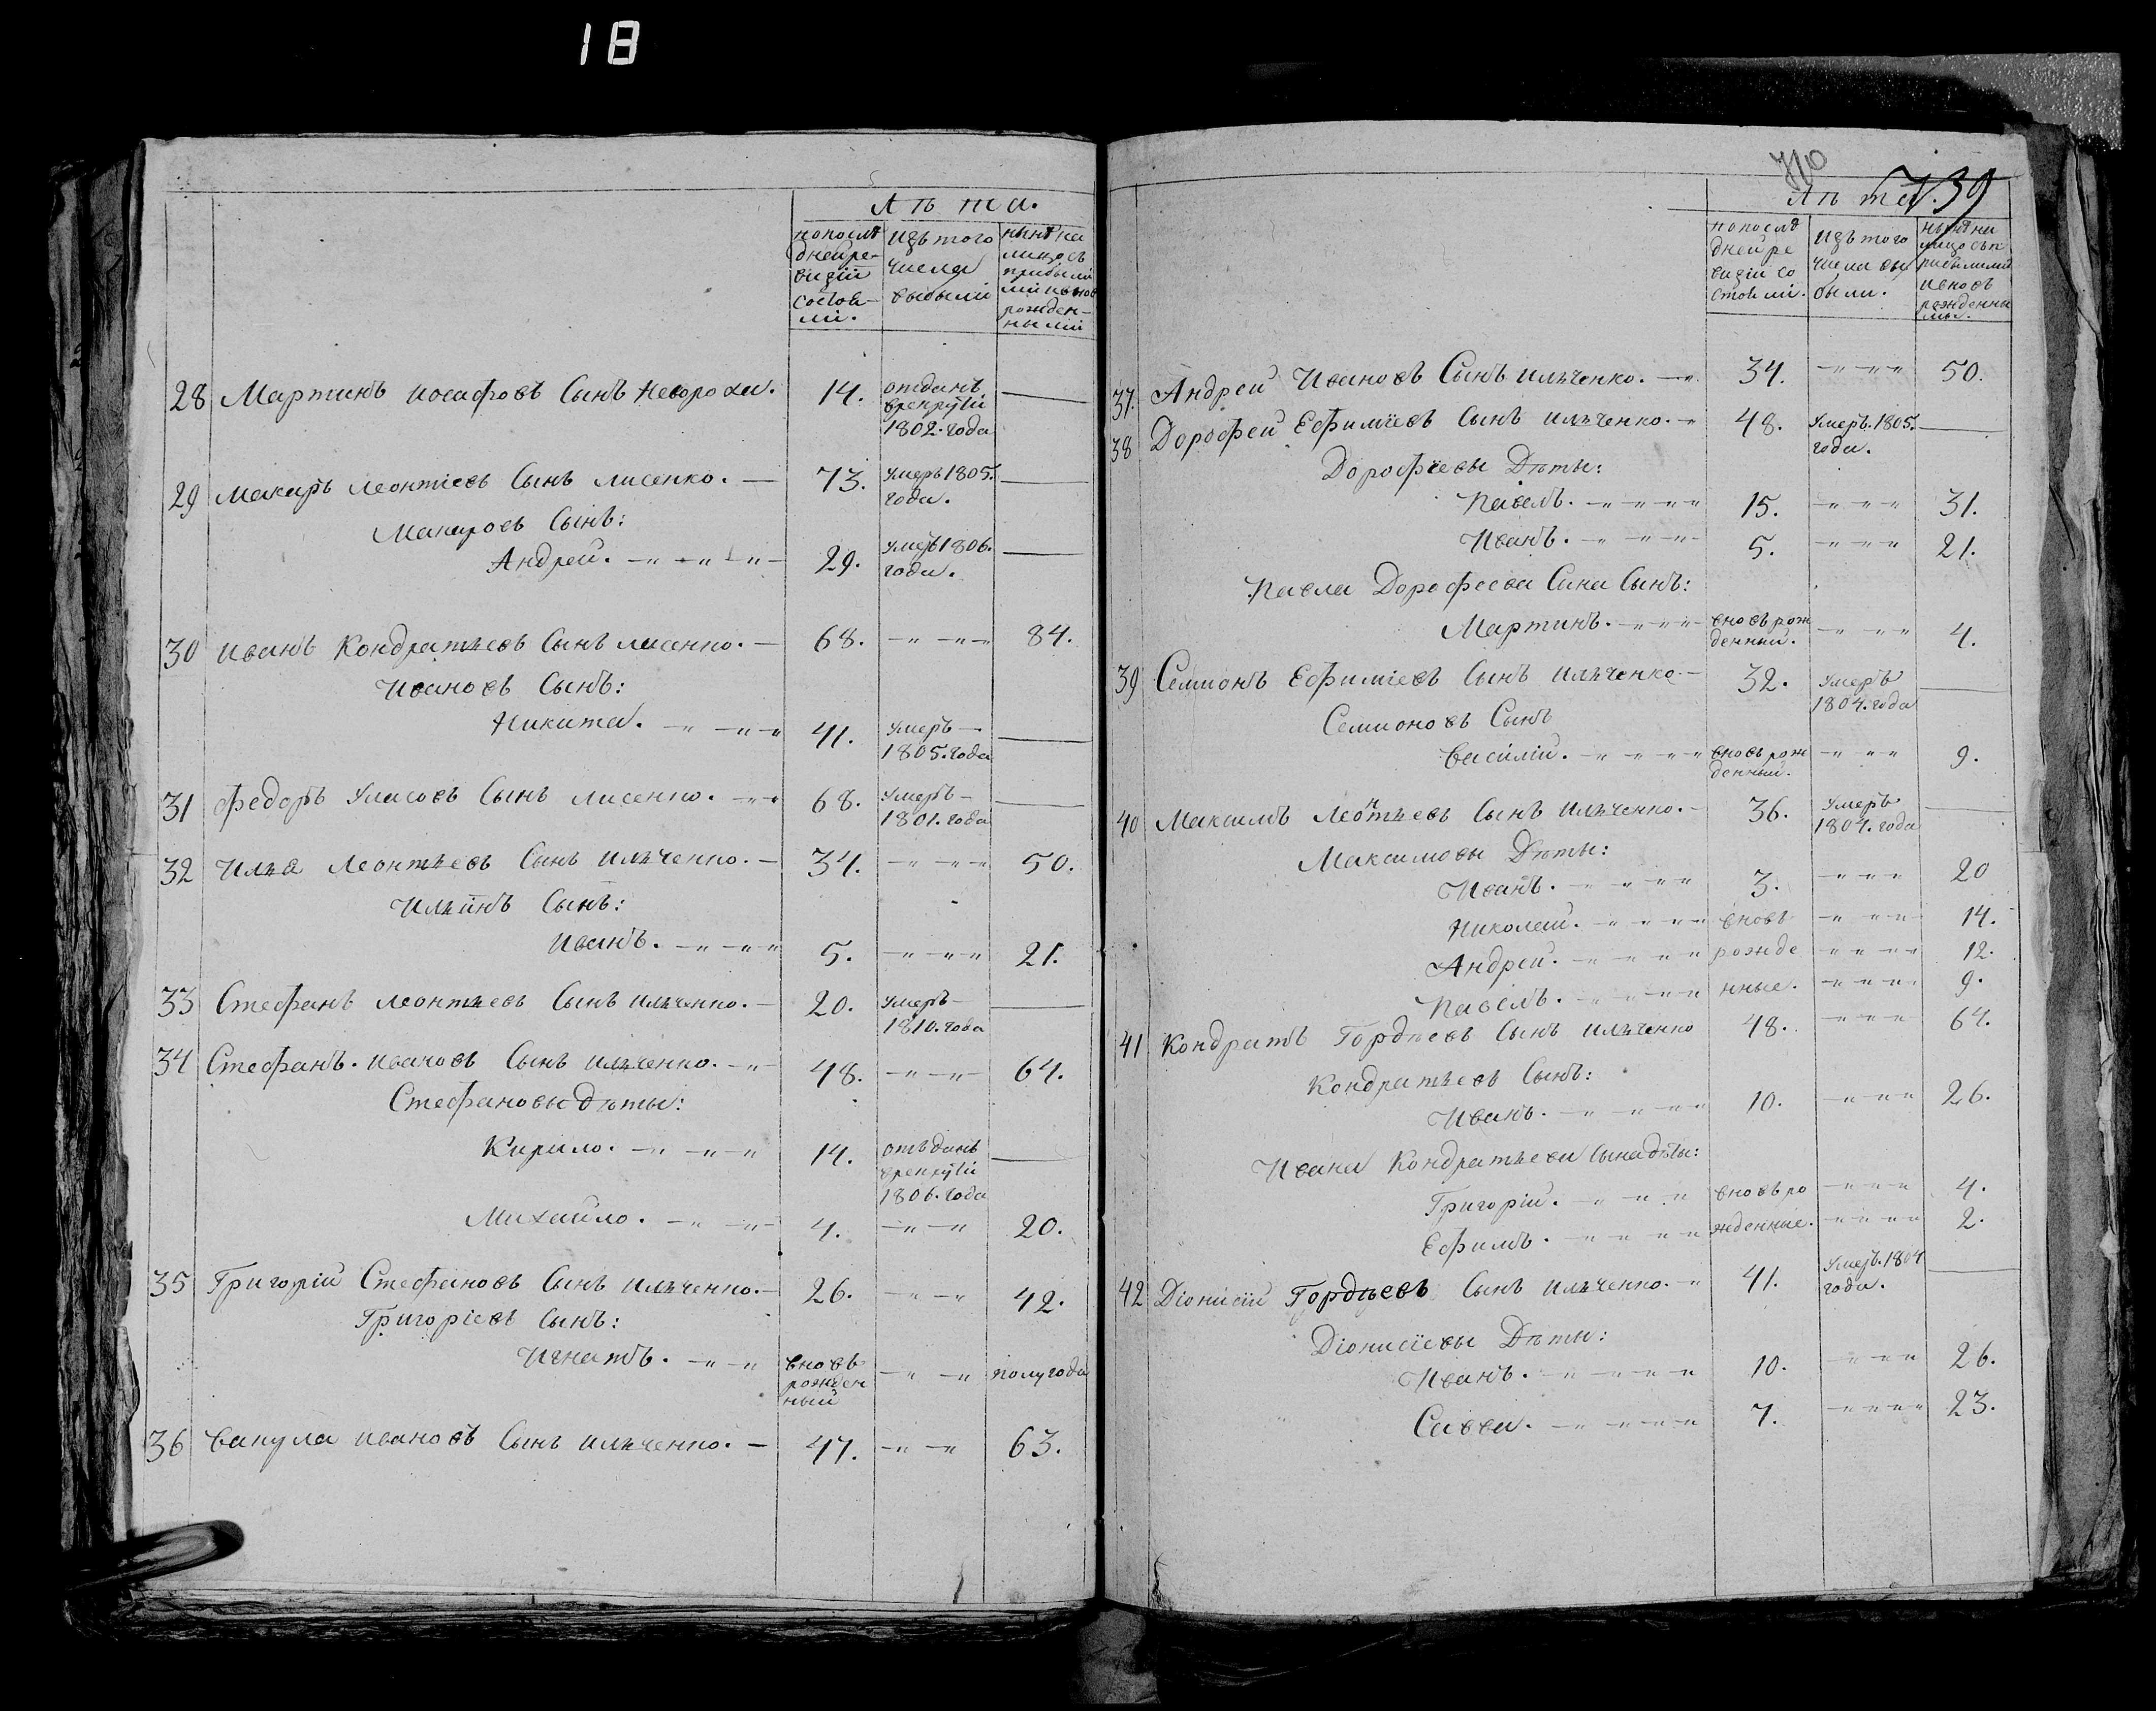 18
Лѣта.
по послѣ
дней ре-
визіи
состоя-
ли.
изъ того
числа
выбыли
нынѣ на
лицо съ
прибылы
ми и внов
рожден-
ными
28 Мартинъ Иосафовъ Сынъ 14. отданъ
в рекруты
1802. года
29 Макаръ Леонтіевъ Сынъ Лисенко. 73. Умеръ 1805.
года.
Макаровъ Сынъ:
Андрей. 29. Умеръ 1806.
года.
30 Иванъ Кондратьевъ Сынъ Лисенко. 68. 84.
Ивановъ Сынъ:
Никита. 41. Умеръ
1805. года
31 Федоръ Уласовъ Сынъ Лисенко. 68. Умеръ
1801. года
32 Илья Леонтьевъ Сынъ Ильченко. 34. 50.
Ильинъ Сынъ:
Иванъ. 5. 21.
33 Стефанъ Леонтьевъ Сынъ Ильченко. 20. Умеръ
1810. года
34 Стефанъ. Ивановъ Сынъ Ильченко. 48. 64.
Стефановы дѣты:
Кирило. 14. отъданъ
в рекруты
1806. года
Михайло. 4. 20.
35 Григорій Стефановъ Сынъ Ильченко. 26. 42.
Григоріевъ Сынъ:
Игнатъ. вновь
рожден
ный
полугода
36 Вакула Ивановъ Сынъ Ильченко. 47. 63.
39
Лѣта.
по послѣ
дней ре
визіи со
стояли.
изъ того
числа вы
были.
нынѣ на
лицо съ п
рибылыми
и вновь
рожденны
мы.
37. Андрей Ивановъ Сынъ Ильченко. 34. 50.
38 Дорофей Ефиміевъ Сынъ Ильченко. 48. Умеръ. 1805.
года.
Дорофіевы Дѣты:
Павелъ. 15. 31.
Иванъ. 5. 21.
Павла Дорофеева Сина Сынъ:
Мартинъ. вновь рож
денный. 4.
39 Семионъ Ефиміевъ Сынъ Ильченко 32. Умеръ
1804. года
Семионовъ Сынъ
Василій. вновь рож
денный. 9.
40 Максимъ Леонтьевъ Сынъ Ильченко. 36. Умеръ
1804. года
Максимовы Дѣты:
Иванъ. 3. 20
Николай. вновь 14.
Андрей. рожде 12.
Павелъ. нные. 9.
41 Кондратъ Гордѣевъ Сынъ Ильченко 48. 64.
Кондратьевъ Сынъ:
Иванъ. 10. 26.
Ивана Кондратьева Сына дѣты:
Григорій. вновь ро 4.
Ефимъ. жденные. 2.
42 Діонисій Гордѣевъ Сынъ Ильченко. 41. Умеръ. 1804
года.
Діонисіевы Дѣты:
Иванъ. 10. 26.
Савва. 7. 23.